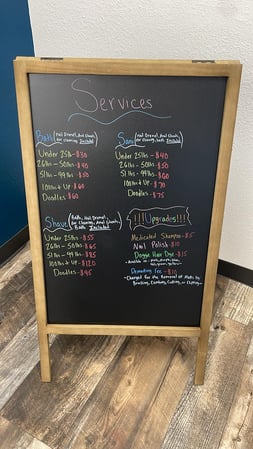 Services
Bath (Nail Dremel, Anal Glands,
Ear cleaning Included)
Under 25lb - $30
26lbs - 50lbs - $40
51lbs - 99lbs - $50
100lb + Up - $60
Doodles - $60
Sani (Nail Dremel, Anal Glands,
Ear cleaning, bath Included)
Under 25lbs - $40
26lbs - 50lbs - $50
51lbs - 99lbs - $60
100lb + Up - $70
Doodles - $75
Shave (Bath, Nail Dremel,
Ear Cleaning, Anal Glands,
Included)
Under 25lbs - $55
26lbs - 50lbs - $65
51lbs - 99lbs - $85
100lb + Up - $120
Doodles - $95
!!!Upgrades!!!
Medicated Shampoo - $5
Nail Polish - $10
Doggie Hair Dye - $15
Dematting Fee - $10
- Charged for the Removal of Matts by
Brushing, Combing, Cutting, or Clipping -